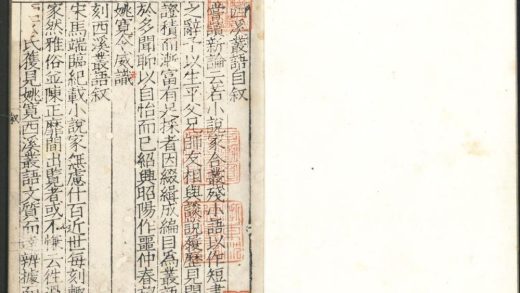 西溪叢語自叙
嘗讀新論云若小說家合叢殘小語以作短書
之辭予以生平父兄師友相與談說履歷見聞
證積而漸富有足採者因綴緝成編目為叢語
於多聞聊以自怡而已紹興昭陽作噩仲春
姚寬令威識
刻西溪叢語叙
宋馬端臨紀載小說家無慮什百近世每刻
家然雅俗並陳正靡間出覽者或不慊云往
氏獲見姚寬西溪叢語文質而辨據
叙